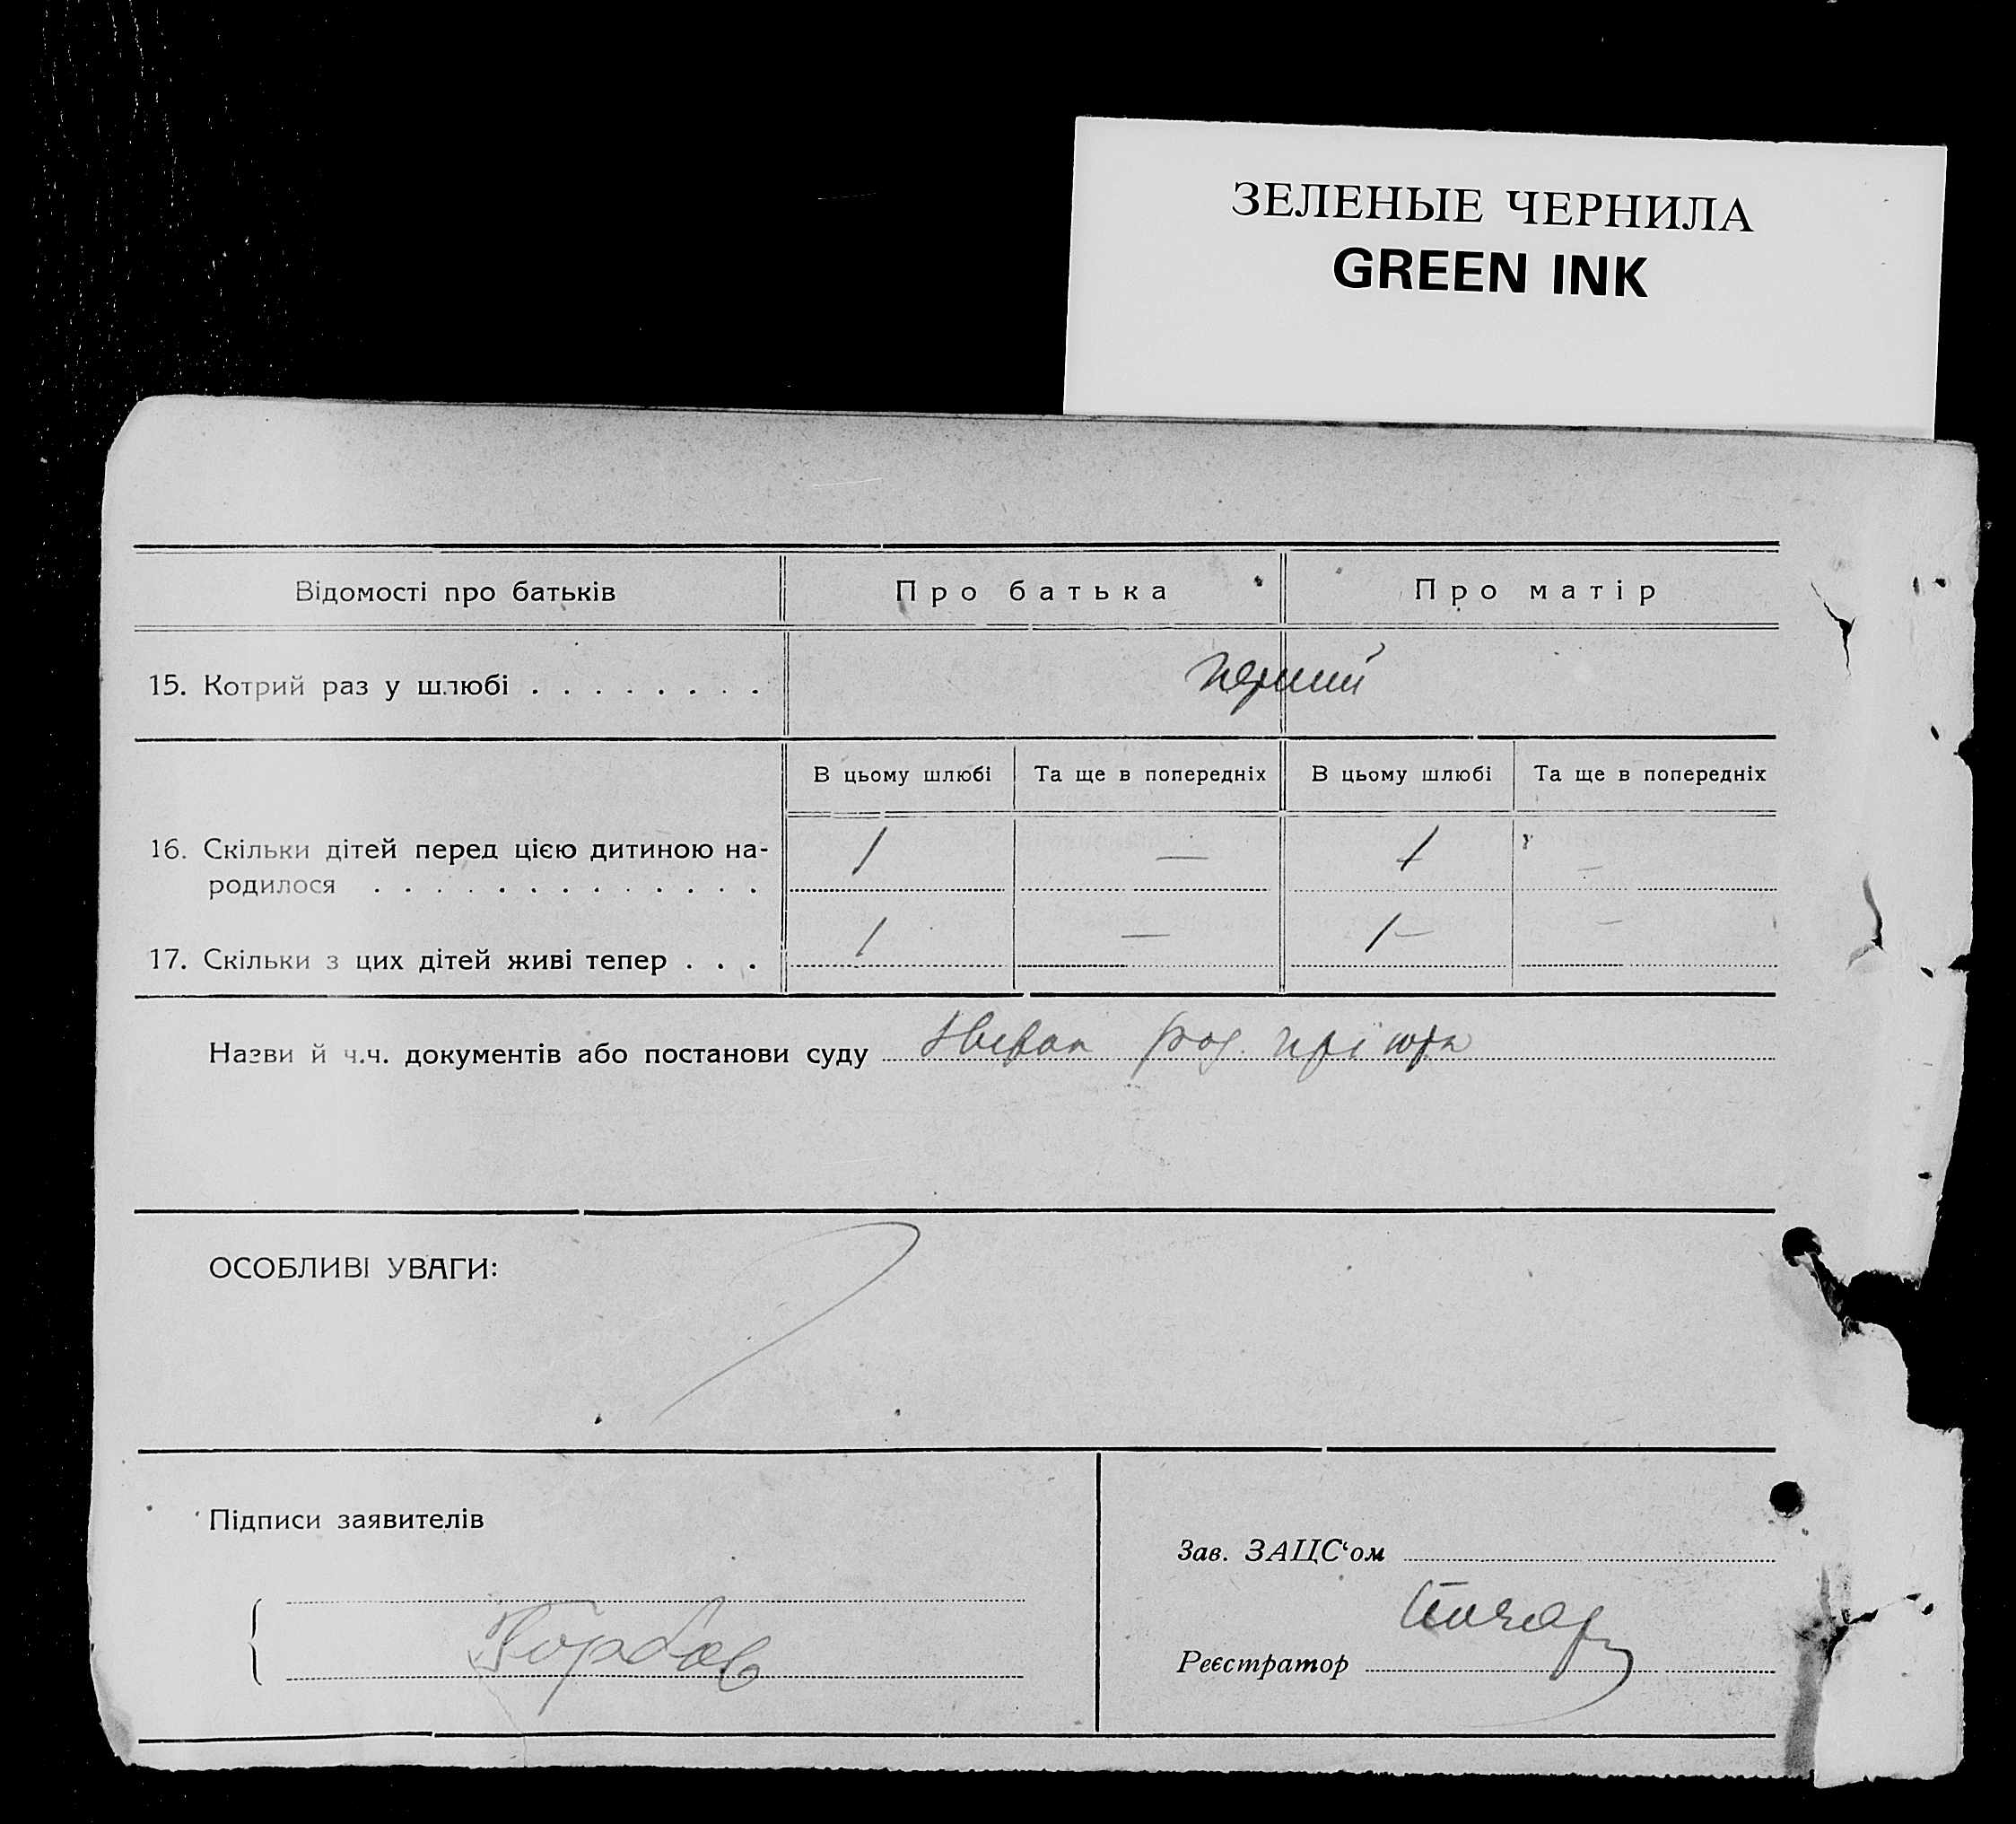 ЗЕЛЕНЫЕ ЧЕРНИЛА
GREEN INK
Відомості про батьків Про батька Про матір
15. Котрий раз у шлюбі . . . . . . . . перший
В цьому шлюбі Та ще в попередніх В цьому шлюбі Та ще в попередніх
16. Скільки дітей перед цією дитиною на-
родилося . . . . . . . . . . . . . 1 — 1 —
17. Скільки з цих дітей живі тепер . . . 1 — 1 —
Назви й ч.ч. документів або постанови суду
ОСОБЛИВІ УВАГИ:
Підписи заявителів
Зав. ЗАЦС‘ом
Горбов
Реєстратор